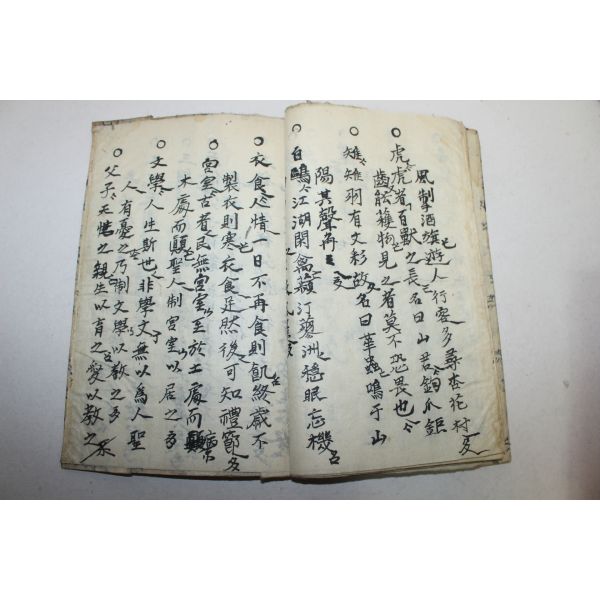 風掣酒旗遊人行客多尋杏花村
○虎虎者百獸之長名曰山君鉤爪鉅
齒觝獲物見之者莫不恐畏也
○雉雉羽有文彩故名曰華蟲鳴于山
陽其聲角
○白鷗江湖閑禽蘋汀蓼洲穩眠忘機
○衣食人情一日不再食則飢終歲不
製衣則寒衣食足然後可知禮節
○宮室古者民無宮室至於土處而
木處而顚聖人制宮室以居之
○文學人生斯世非學文無以爲人聖
人有憂之乃制文學以敎之
○父子天性之親生以育之愛以敎之